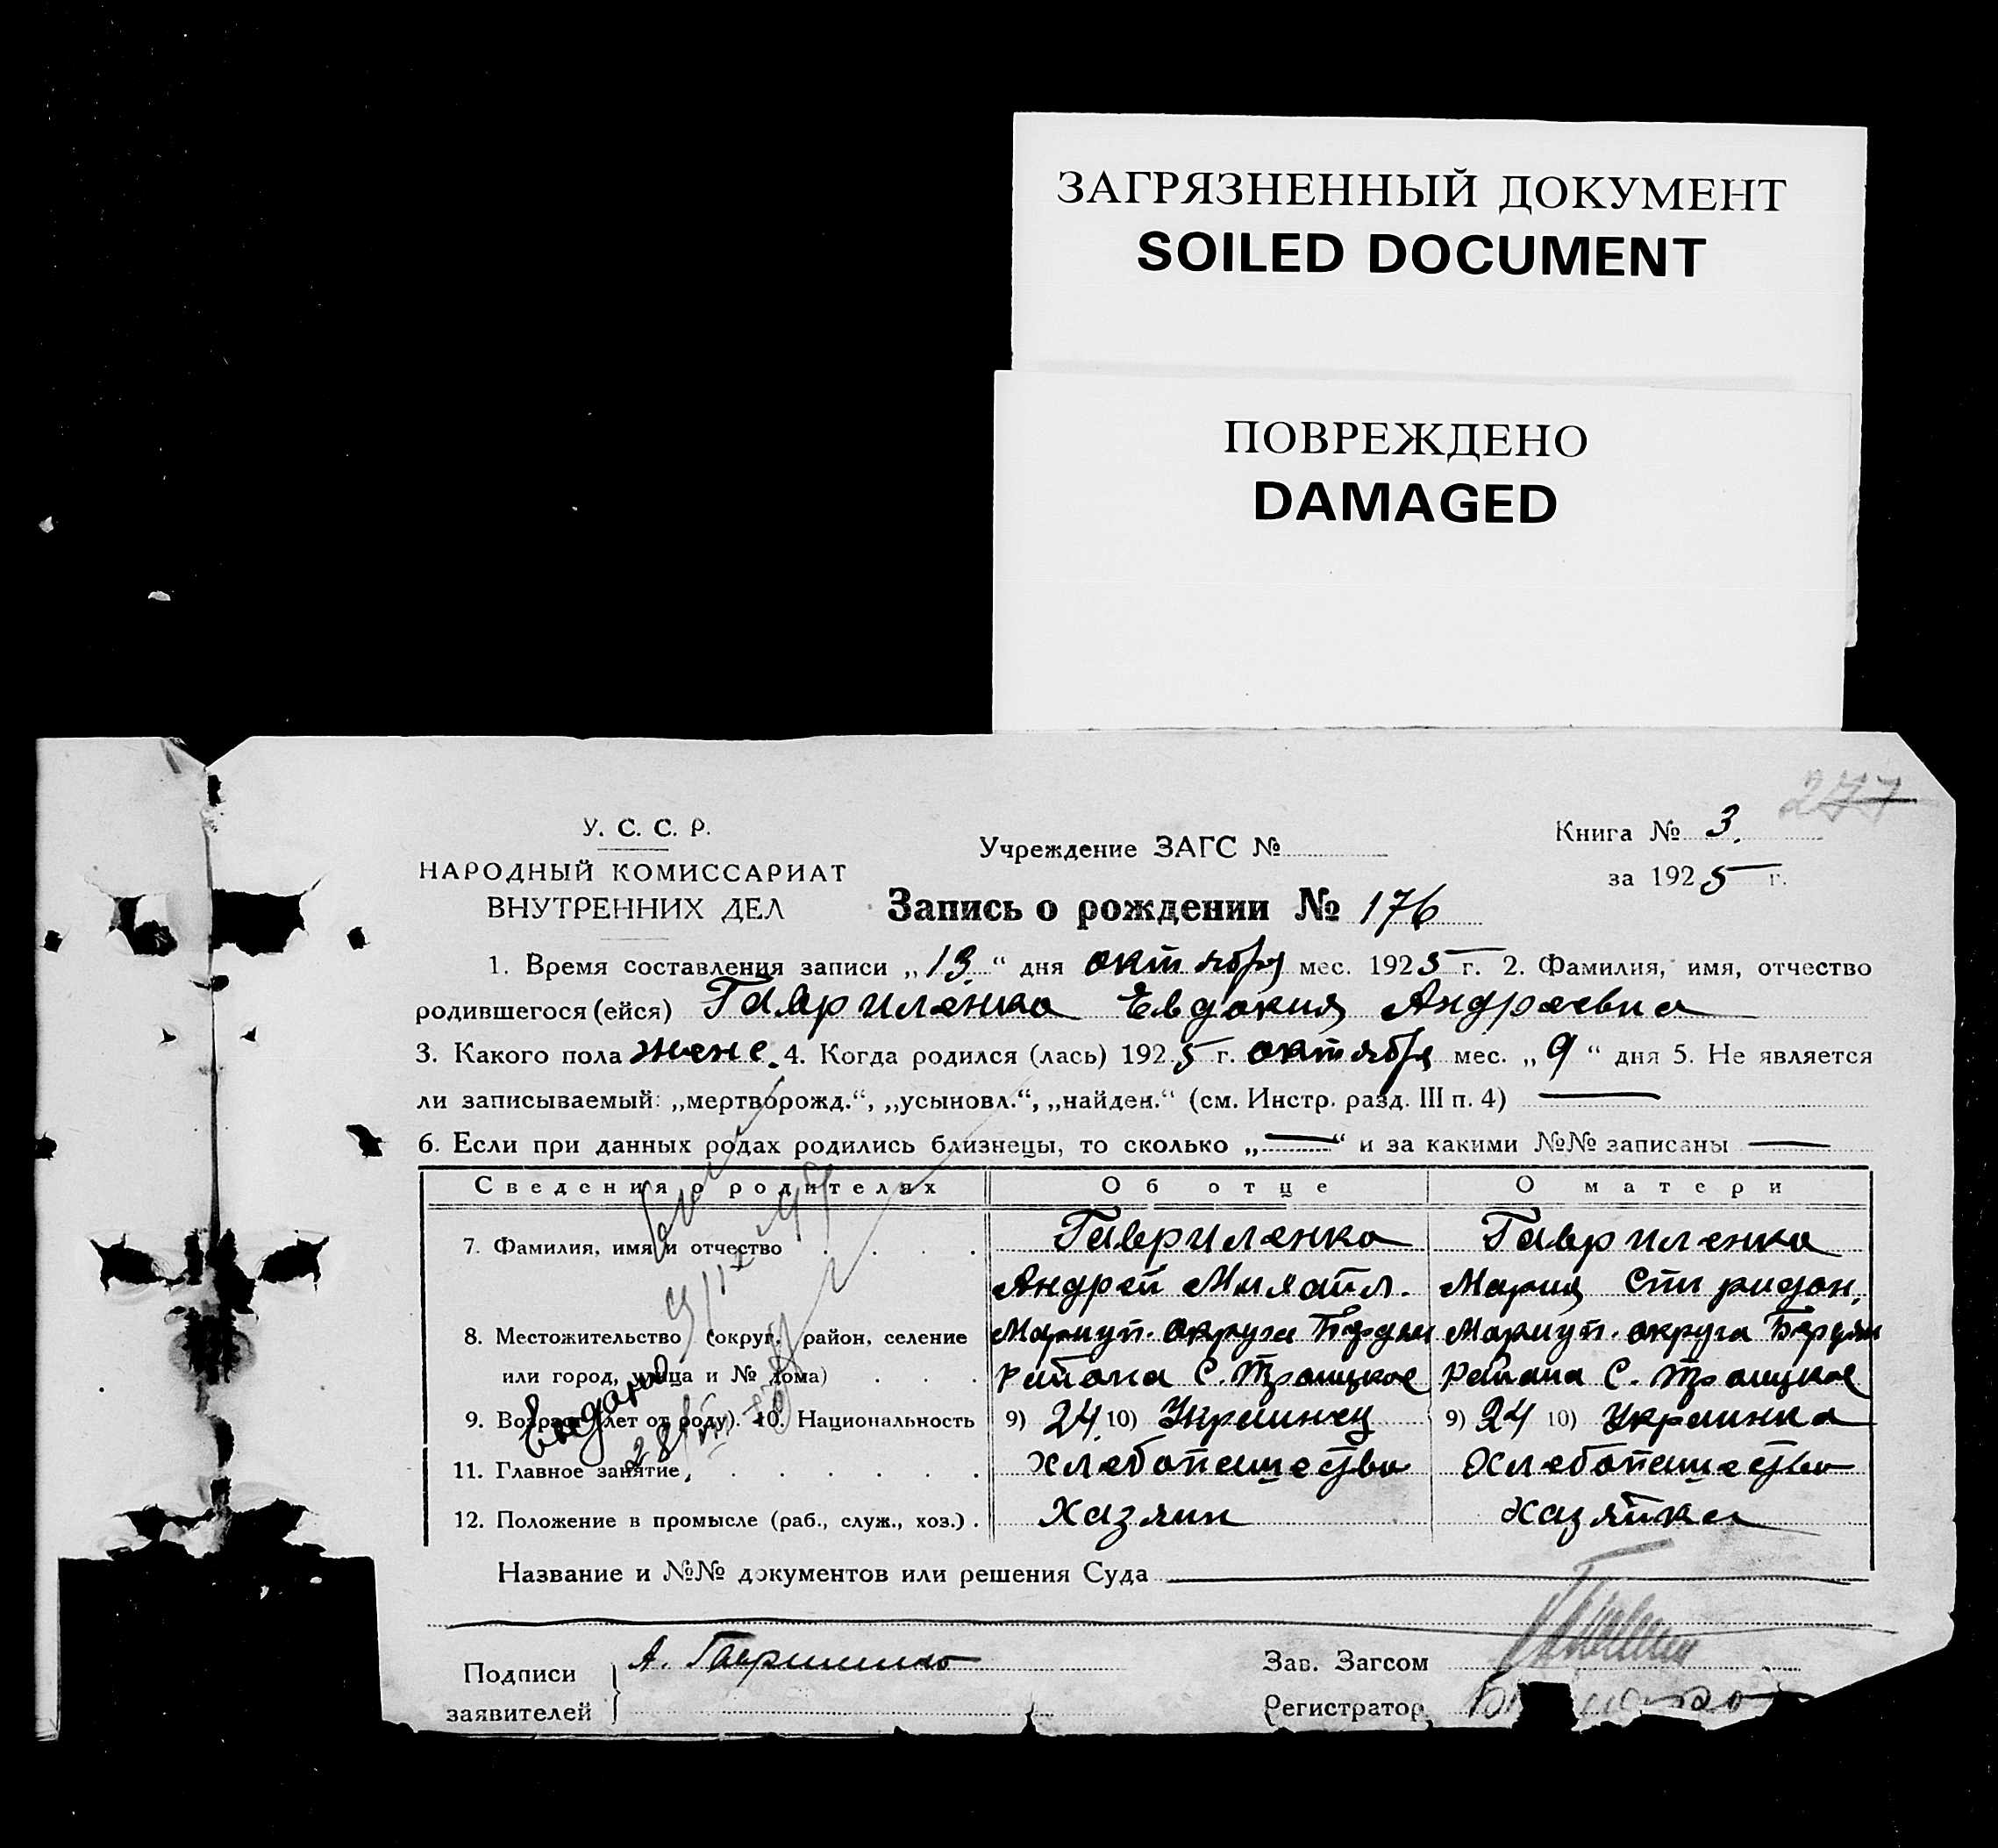 ЗАГРЯЗНЕННЫЙ ДОКУМЕНТ
SOILED DOCUMENT
ПОВРЕЖДЕНО
DAMAGED
277
У. С. С. Р.
НАРОДНЫЙ КОМИССАРИАТ
ВНУТРЕННИХ ДЕЛ
Учреждение ЗАГС №
Книга № 3.
за 1925 г.
Запись о рождении № 176
1. Время составления записи „13“ дня октября мес. 1925 г. 2. Фамилия, имя, отчество
родившегося (ейся) Гавриленко Евдокия Андреевна
3. Какого пола женс. 4. Когда родился (лась) 1925 г. октября мес. „9“ дня 5. Не является
ли записываемый: „мертворожд.“, „усыновл.“, „найден.“ (см. Инстр. разд. III п. 4) —
6. Если при данных родах родились близнецы, то сколько „—“ и за какими №№ записаны —
Сведения о родителях Об отце О матери
7. Фамилия, имя и отчество . . . . Гавриленко Гавриленко
Андрей Михайл. Мария Спиридон.
8. Местожительство (округ, район, селение Мариуп. округа Бердян Мариуп. округа Бердян
или город, улица и № дома) . . . района С. Троицкое района С. Троицкое
9. Возраст (лет от роду). 10. Национальность 9) 24 10) Украинец 9) 24 10) Украинка
11. Главное занятие . . . . . . Хлебопашество Хлебопашество
12. Положение в промысле (раб., служ., хоз.) . Хазяин Хазяйка
Название и №№ документов или решения Суда —
Подписи
заявителей
А. Гавриленко
Зав. Загсом
Регистратор